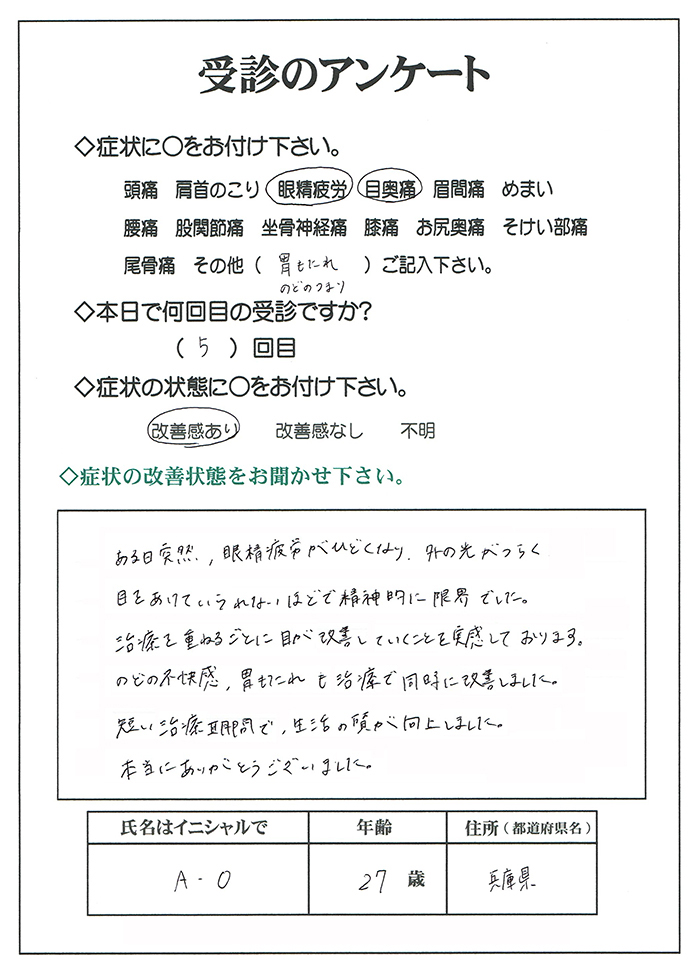 受診のアンケート
◇症状に〇をお付け下さい。
頭痛 肩首のこり 眼精疲労 目奥痛 眉間痛 めまい
腰痛 股関節痛 坐骨神経痛 膝痛 お尻奥痛 そけい部痛
尾骨痛 その他（ 胃もたれ ）ご記入下さい。
のどのつまり
◇本日で何回目の受診ですか?
（ 5 ）回目
◇症状の状態に〇をお付け下さい。
改善感あり 改善感なし 不明
◇症状の改善状態をお聞かせ下さい。
ある日突然、眼精疲労がひどくなり、外の光がつらく
目をあけていられないほどで精神的に限界でした。
治療を重ねるごとに目が改善していくことを実感しております。
のどの不快感、胃もたれも治療で同時に改善しました。
短い治療期間で、生活の質が向上しました。
本当にありがとうございました。
氏名はイニシャルで 年齢 住所（都道府県名）
A - O 27 歳 兵庫県